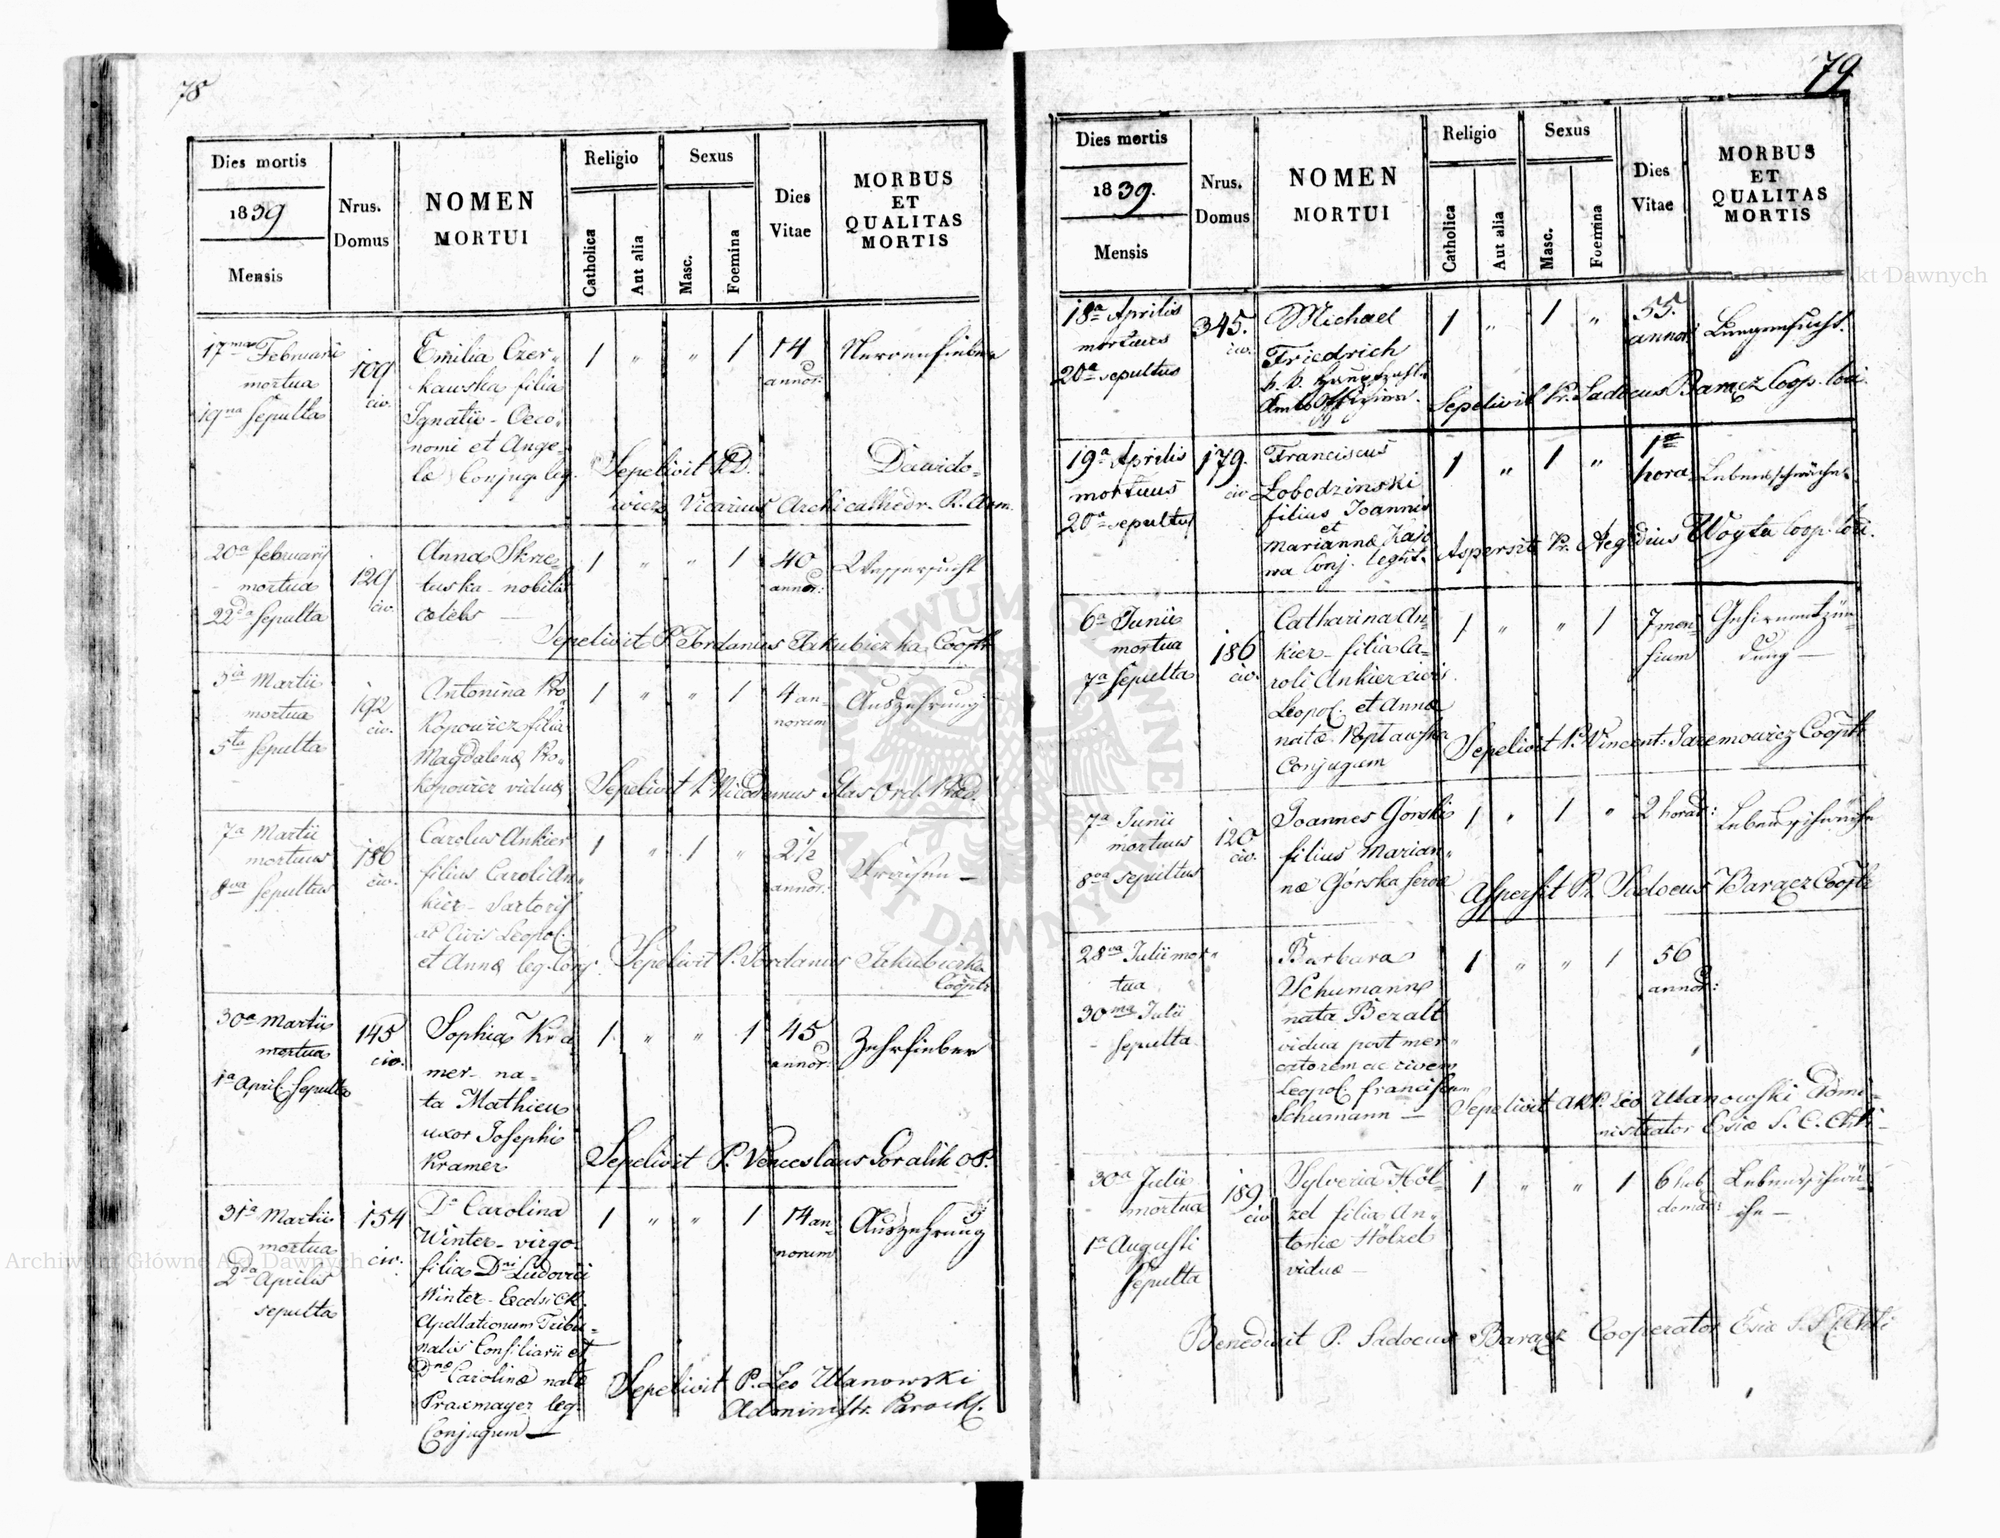 78
Dies mortis
1839
Mensis
Nrus.
Domus
NOMEN
MORTUI
Religio
Catholica
Aut alia
Sexus
Masc.
Foemina
Dies
Vitae
MORBUS
ET
QUALITAS
MORTIS
17ma Februarii
mortua
19na Sepulta
109
civ.
Emilia Czer„
kawska filia
Ignatii - Oeco„
nomi et Ange„
lae Conjug. leg.
1 „ „ 1
14
annor:
Nervenfieber
Sepelivit P.D. Dawido„
wicz Vicarius Archicathedr. R. Arm.
20a february
mortua
22da Sepulta
129
civ.
Anna Skrze„
tuska - nobilis
caelebs
1 „ „ 1
40
annor:
Wassersucht
Sepelivit P. Jordanus Jakubiczka Cooptr
3tia Martii
mortua
5ta Sepulta
192
civ.
Antonina Pro„
kopowicz filia
Magdalenae Pro„
kopowicz viduae
1 „ „ 1
4 an„
norum
Auszehrung
Sepelivit P. Nicodemus Glas Ord. Praed.
7a Martii
mortuus
8va Sepultus
186
civ.
Carolus Ankier
filius Caroli An„
kier - Sartoris
ac Civis Leopol.
et Annae leg. Conj.
1 „ 1 „
2½
annor:
Fraisen —
Sepelivit P. Jordanus Jakubiczka
Cooptr
30a Martii
mortua
1a April. Sepulta
145
civ.
Sophia Kra„
mer - na„
ta Mathieu
uxor Josephi
Kramer
1 „ „ 1
45
annor:
Zehrfieber
Sepelivit P. Venceslaus Goralik OP.
31a Martii
mortua
2da Aprilis
sepulta
154
civ.
Da Carolina
Winter - virgo
filia Dni Ludovici
Winter - Excels. C.R.
Apellationum Tribu„
nalis Consiliarii et
Dnae Carolinae natae
Praxmayer leg.
Conjugum —
1 „ „ 1
14 an„
norum
Auszehrung
Sepelivit P. Leo Ulanowski
Administr. Paroch.
79
Dies mortis
1839.
Mensis
Nrus.
Domus
NOMEN
MORTUI
Religio
Catholica
Aut alia
Sexus
Masc.
Foemina
Dies
Vitae
MORBUS
ET
QUALITAS
MORTIS
18a Aprilis
mortuus
20a sepultus
345.
civ.
Michael
Friedrich
k. k.
1 „ 1 „
55.
annor:
Lungensucht.
Sepelivit Pr. Sadocus Barącz Coop. loci.
19a Aprilis
mortuus
20a sepultus
179.
civ.
Franciscus
Łobodzinski
filius Joannis
et
Mariannae
Conj. legit.
1 „ 1 „
1na
hora
Lebensschwäche.
Aspersit Pr. Aegidius Woyta Coop. loci.
6a Junii
mortua
7a Sepulta
186
civ.
Catharina An„
kier - filia Ca„
roli Ankier civis
Leopol. et Annae
natae Popławska
Conjugum
1 „ „ 1
7 men„
sium
Gehirnentzün„
dung —
Sepelivit P. Vincent: Jaremowicz Cooptr
7a Junii
mortuus
8va sepultus
120
civ.
Joannes Górski
filius Marian„
nae Górska servae
1 „ 1 „
2 horar:
Lebensschwäche
Aspersit Pr. Sadocus Barącz Cooptr
28va Julii mor„
tua
30ma Julii
Sepulta
Barbara
Schumann
nata Bezalt
vidua post mer„
catorem ac civem
Leopol. Franciscum
Schumann —
1 „ „ 1
56
annor:
Sepelivit ARP. Leo Ulanowski Admi„
nistrator Eccae S. C. Chti
30a Julii
mortua
1a Augusti
Sepulta
189
civ
Sylveria Höl„
zel filia An„
toniae Hölzel
viduae —
1 „ „ 1
6 heb„
domad:
Lebensschwä„
che —
Benedixit P. Sadocus Barącz Cooperator Eccae S. C. Chti
Archiwum Główne Akt Dawnych
Archiwum Główne Akt Dawnych
ARCHIWUM GŁÓWNE
AKT DAWNYCH